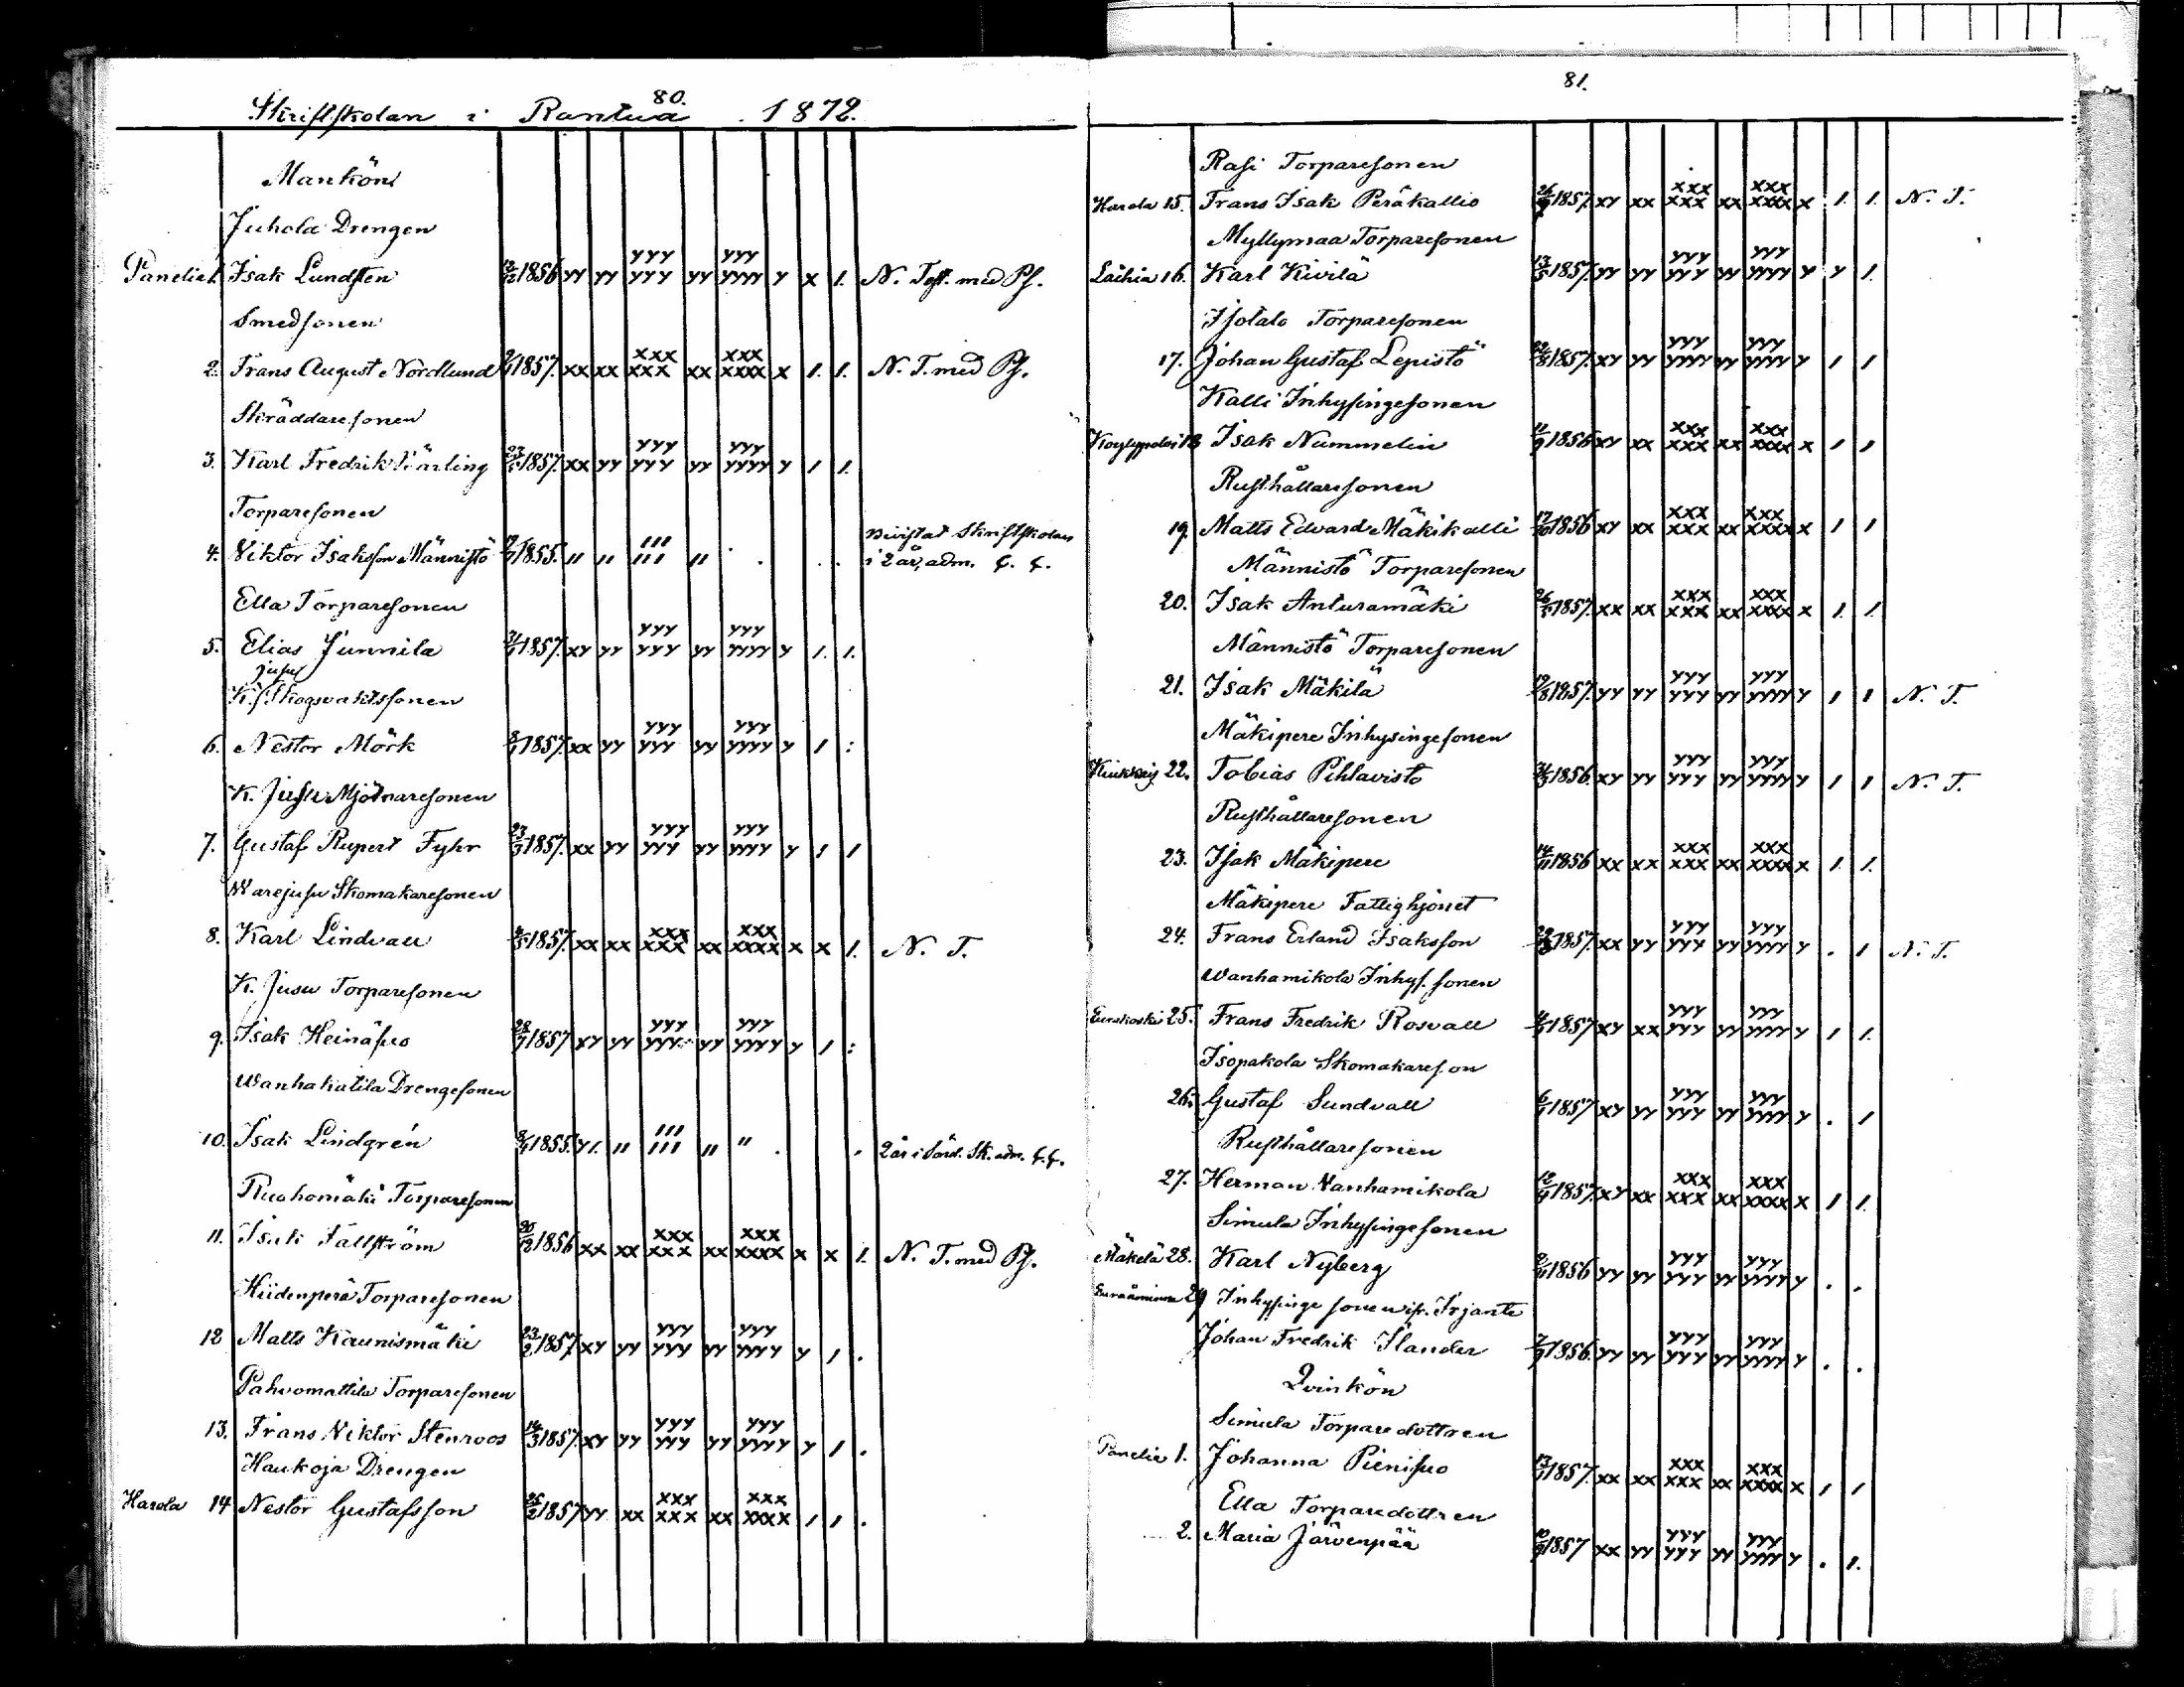 80.
Skriftskolan i Rantua 1872.
Mankön
Juhola Drengen
Panelia 1. Isak Lundsten 1856 yy yy yyy yyy yy yyy yyyy y x 1. N. Test. med Ps.
Smedsonen
2. Frans August Nordlund 1857. xx xx xxx xxx xx xxx xxxx x 1. 1. N. T. med Ps.
Skräddaresonen
3. Karl Fredrik Kärling 1857. xx yy yyy yyy yy yyy yyyy y 1 1.
Torparesonen
4. Viktor Isaksson Männistö 1855. " " ııı ııı " Skriftskolan
i 2 år, adm.
Ella Torparesonen
5. Elias Junnila 1857. xy yy yyy yyy yy yyy yyyy y 1. 1.
Jusu
K. Skogsvaktssonen
6. Nestor Mörk 1857. xx yy yyy yyy yy yyy yyyy y 1 :
K. Jusu Mjölnaresonen
7. Gustaf Rupert Fyhr 1857. xx yy yyy yyy yy yyy yyyy y 1 1
Warejusu Skomakaresonen
8. Karl Lindvall 1857. xx xx xxx xxx xx xxx xxxx x x 1. N. T.
K. Jusu Torparesonen
9. Isak Heinäsuo 1857 xy yy yyy yyy yy yyy yyyy y 1 :
Wanhakatila Drengesonen
10. Isak Lindgrén 1855. y1. " ııı ııı " " . . 2 år i Sk. adm.
Ruohomäki Torparesonen
11. Isak Fällström 20/12 1856 xx xx xxx xxx xx xxx xxxx x x 1. N. T. med Ps.
Hiidenperä Torparesonen
12 Matts Kaunismäki 23/2 1857 xy yy yyy yyy yy yyy yyyy y 1 .
Pahvomattila Torparesonen
13. Frans Viktor Stenroos 14/3 1857. xy yy yyy yyy yy yyy yyyy y 1 .
Haukoja Drengen
Harola 14 Nestor Gustafsson 1857 yy xx xxx xxx xx xxx xxxx 1 1 .
81.
Rasi Torparesonen
Harola 15. Frans Isak Peräkallio 1857. xy xx xxx xxx xx xxx xxxx x 1. 1. N. T.
Myllymaa Torparesonen
Lähia 16. Karl Kivilä 1857. yy yy yyy yyy yy yyy yyyy y y 1.
Isotalo Torparesonen
17. Johan Gustaf Lepistö 22/8 1857. xy yy yyy yyyy yy yyy yyyy y 1 1
Kalli Inhysingesonen
18 Isak Nummelin 11/9 1856 xy xx xxx xxx xx xxx xxxx x 1 1
Rusthållaresonen
19. Matts Edvard Mäkikalli 17/10 1856 xy xx xxx xxx xx xxx xxxx x 1 1
Männistö Torparesonen
20. Isak Anturamäki 1857. xx xx xxx xxx xx xxx xxxx x 1. 1.
Männistö Torparesonen
21. Isak Mäkilä 1857. yy yy yyy yyy yy yyy yyyy y 1 1 N. T.
Mäkipere Inhysingesonen
22. Tobias Pihlavisto 1856. xy yy yyy yyy yy yyy yyyy y 1 1 N. T.
Rusthållaresonen
23. Isak Mäkipere 14/11 1856 xx xx xxx xxx xx xxx xxxx x 1. 1.
Mäkipere Fattighjonet
24. Frans Erland Isaksson 1857. xx yy yyy yyy yy yyy yyyy y . 1 N. T.
Wanhamikola Inhys. sonen
Eurakoski 25. Frans Fredrik Rosvall 1857 xy xx yyy yyy yy yyy yyyy y 1 1.
Isopakola Skomakareson
26. Gustaf Sundvall 1857 xy yy yyy yyy yy yyy yyyy y . 1
Rusthållaresonen
27. Herman Vanhamikola 1857. xy xx xxx xxx xx xxx xxxx x 1 1.
Simula Inhysingesonen
Mäkelä 28. Karl Nyberg 1856 yy yy yyy yyy yy yyy yyyy y . .
Euraåminne 29 Inhysinge sonen ifr. Irjante
Johan Fredrik Ilander 1856. yy yy yyy yyy yy yyy yyyy y . .
Qvinkön
Simula Torparedottren
Panelia 1. Johanna Pienisuo 1857. xx xx xxx xxx xx xxx xxxx x 1 1
Ella Torparedottren
2. Maria Järvenpää 1857 xx yy yyy yyy yy yyy yyyy y . 1.